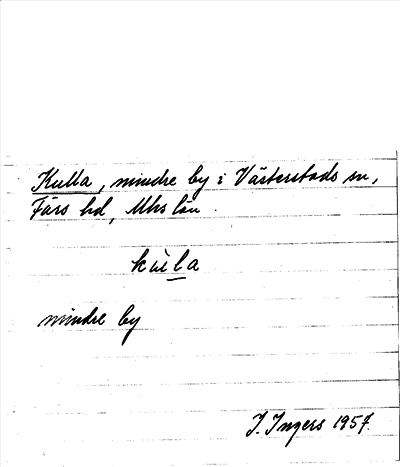 Kulla, mindre by i Västerstads sn,
Färs hd, Mhs län.
kùla
mindre by
I. Ingers 1957.